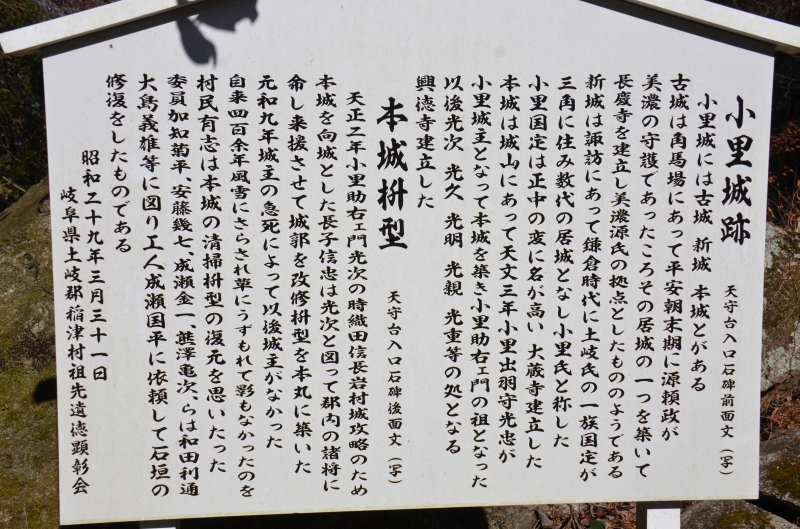 小里城跡
天守台入口石碑前面文(写)
小里城には古城 新城 本城とがある
古城は角馬場にあって平安朝末期に源頼政が
美濃の守護であったころその居城の一つを築いて
長慶寺を建立し美濃源氏の拠点としたもののようである
新城は諏訪にあって鎌倉時代に土岐氏の一族国定が
三角に住み数代の居城となし小里氏と称した
小里国定は正中の変に名が高い 大蔵寺建立した
本城は城山にあって天文三年小里出羽守光忠が
小里城主となって本城を築き小里助右ェ門の祖となった
以後光次 光久 光明 光親 光重等の処となる
興徳寺建立した
本城枡型
天守台入口石碑後面文(写)
天正二年小里助右ェ門光次の時織田信長岩村城攻略のため
本城を向城とした長子信忠は光次と図って郡内の諸将に
命し来援させて城郭を改修枡型を本丸に築いた
元和九年城主の急死によって以後城主がなかった
自来四百余年風雪にさらされ草にうずもれて影もなかったのを
村民有志は本城の清掃枡型の復元を思いたった
委員加知菊平、安藤幾七、成瀬金一、熊澤亀次、らは和田利通
大島義雄等に図り工人成瀬国平に依頼して石垣の
修復をしたものである
昭和二十九年三月三十一日
岐阜県土岐郡稲津村祖先遺徳顕彰会